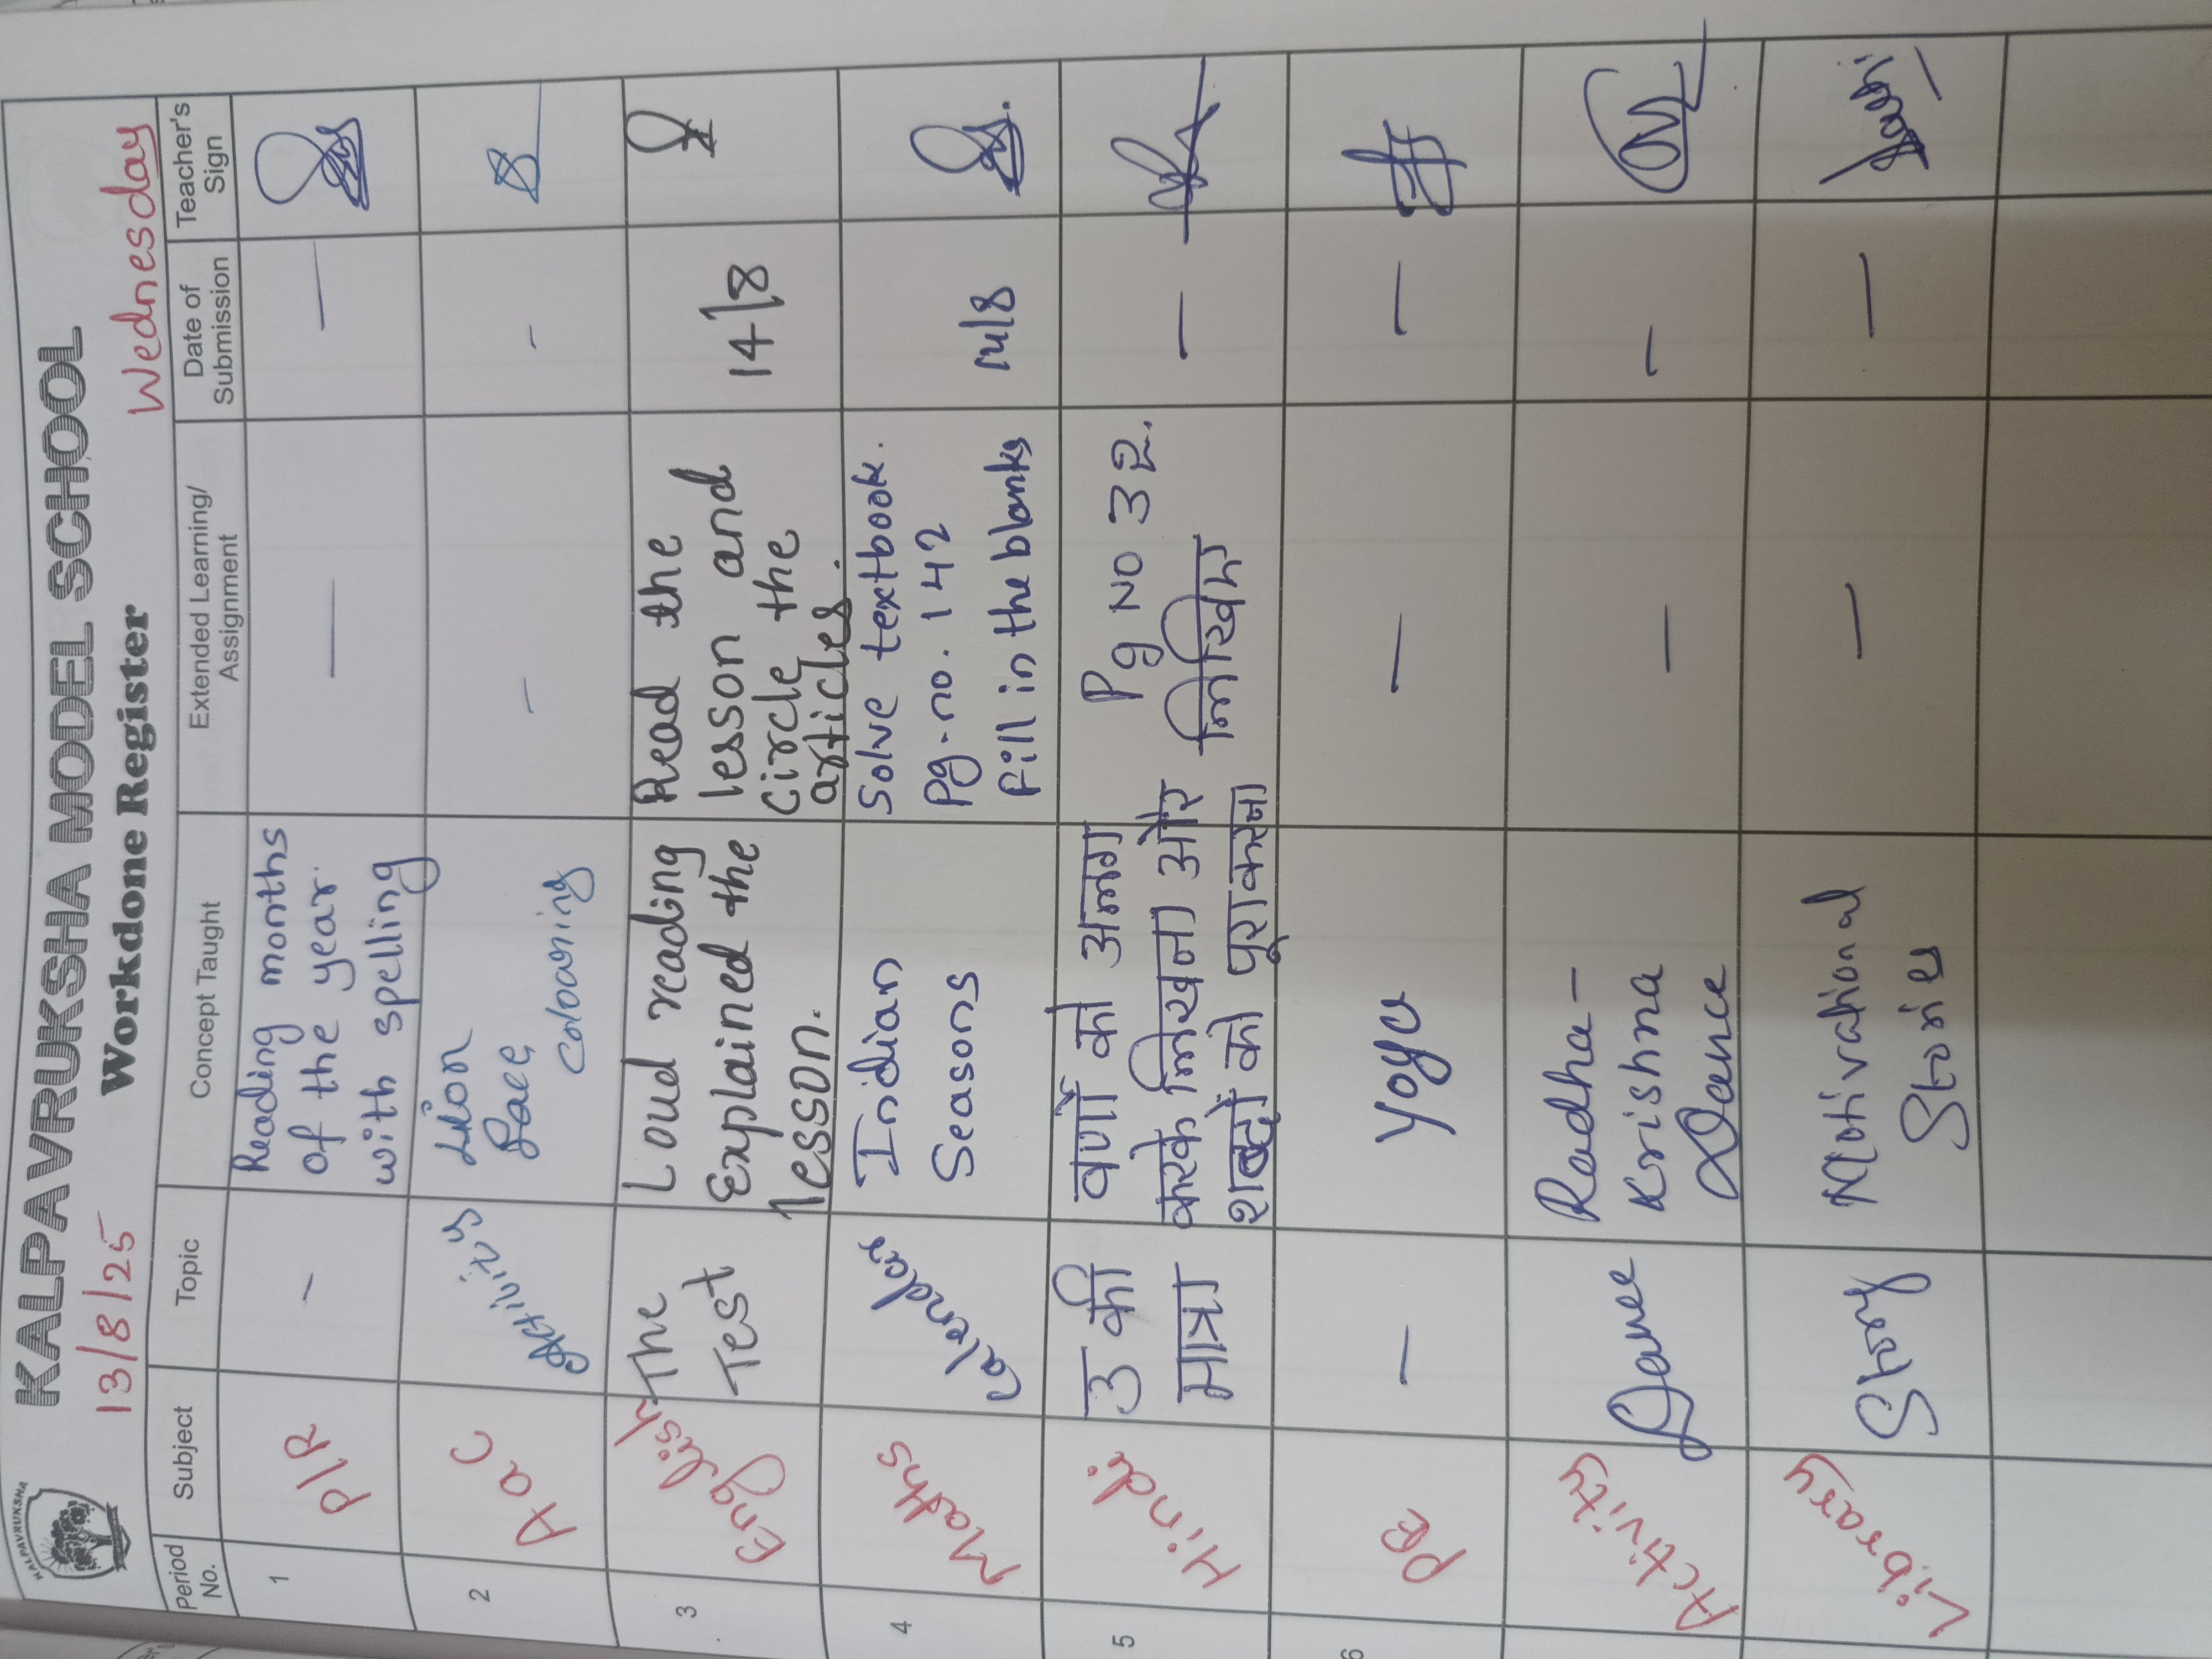 KALPAVRUKSHA
KALPAVRUKSHA MODEL SCHOOL
13/8/25 Workdone Register Wednesday
Period No. Subject Topic Concept Taught Extended Learning/ Assignment Date of Submission Teacher's Sign
1 PIR - Reading months — —
of the year.
with spelling
2 Aac Activity Lion - -
Face
colouring
3 English The Loud reading Read the 14/8
Test Explained the lesson and
lesson. circle the
articles.
4 Maths Calendar Indian Solve textbook. 14/8
Seasons Pg.no. 142
Fill in the blanks
5 Hindi उ की वर्णों को अलग Pg No 32. —
मात्रा करके लिखना और लिखिए
शब्दों को पूरा करना
6 PE — Yoga — —
Activity Dance Radha- — —
Krishna
Dance
Library Story Motivational — —
Stories